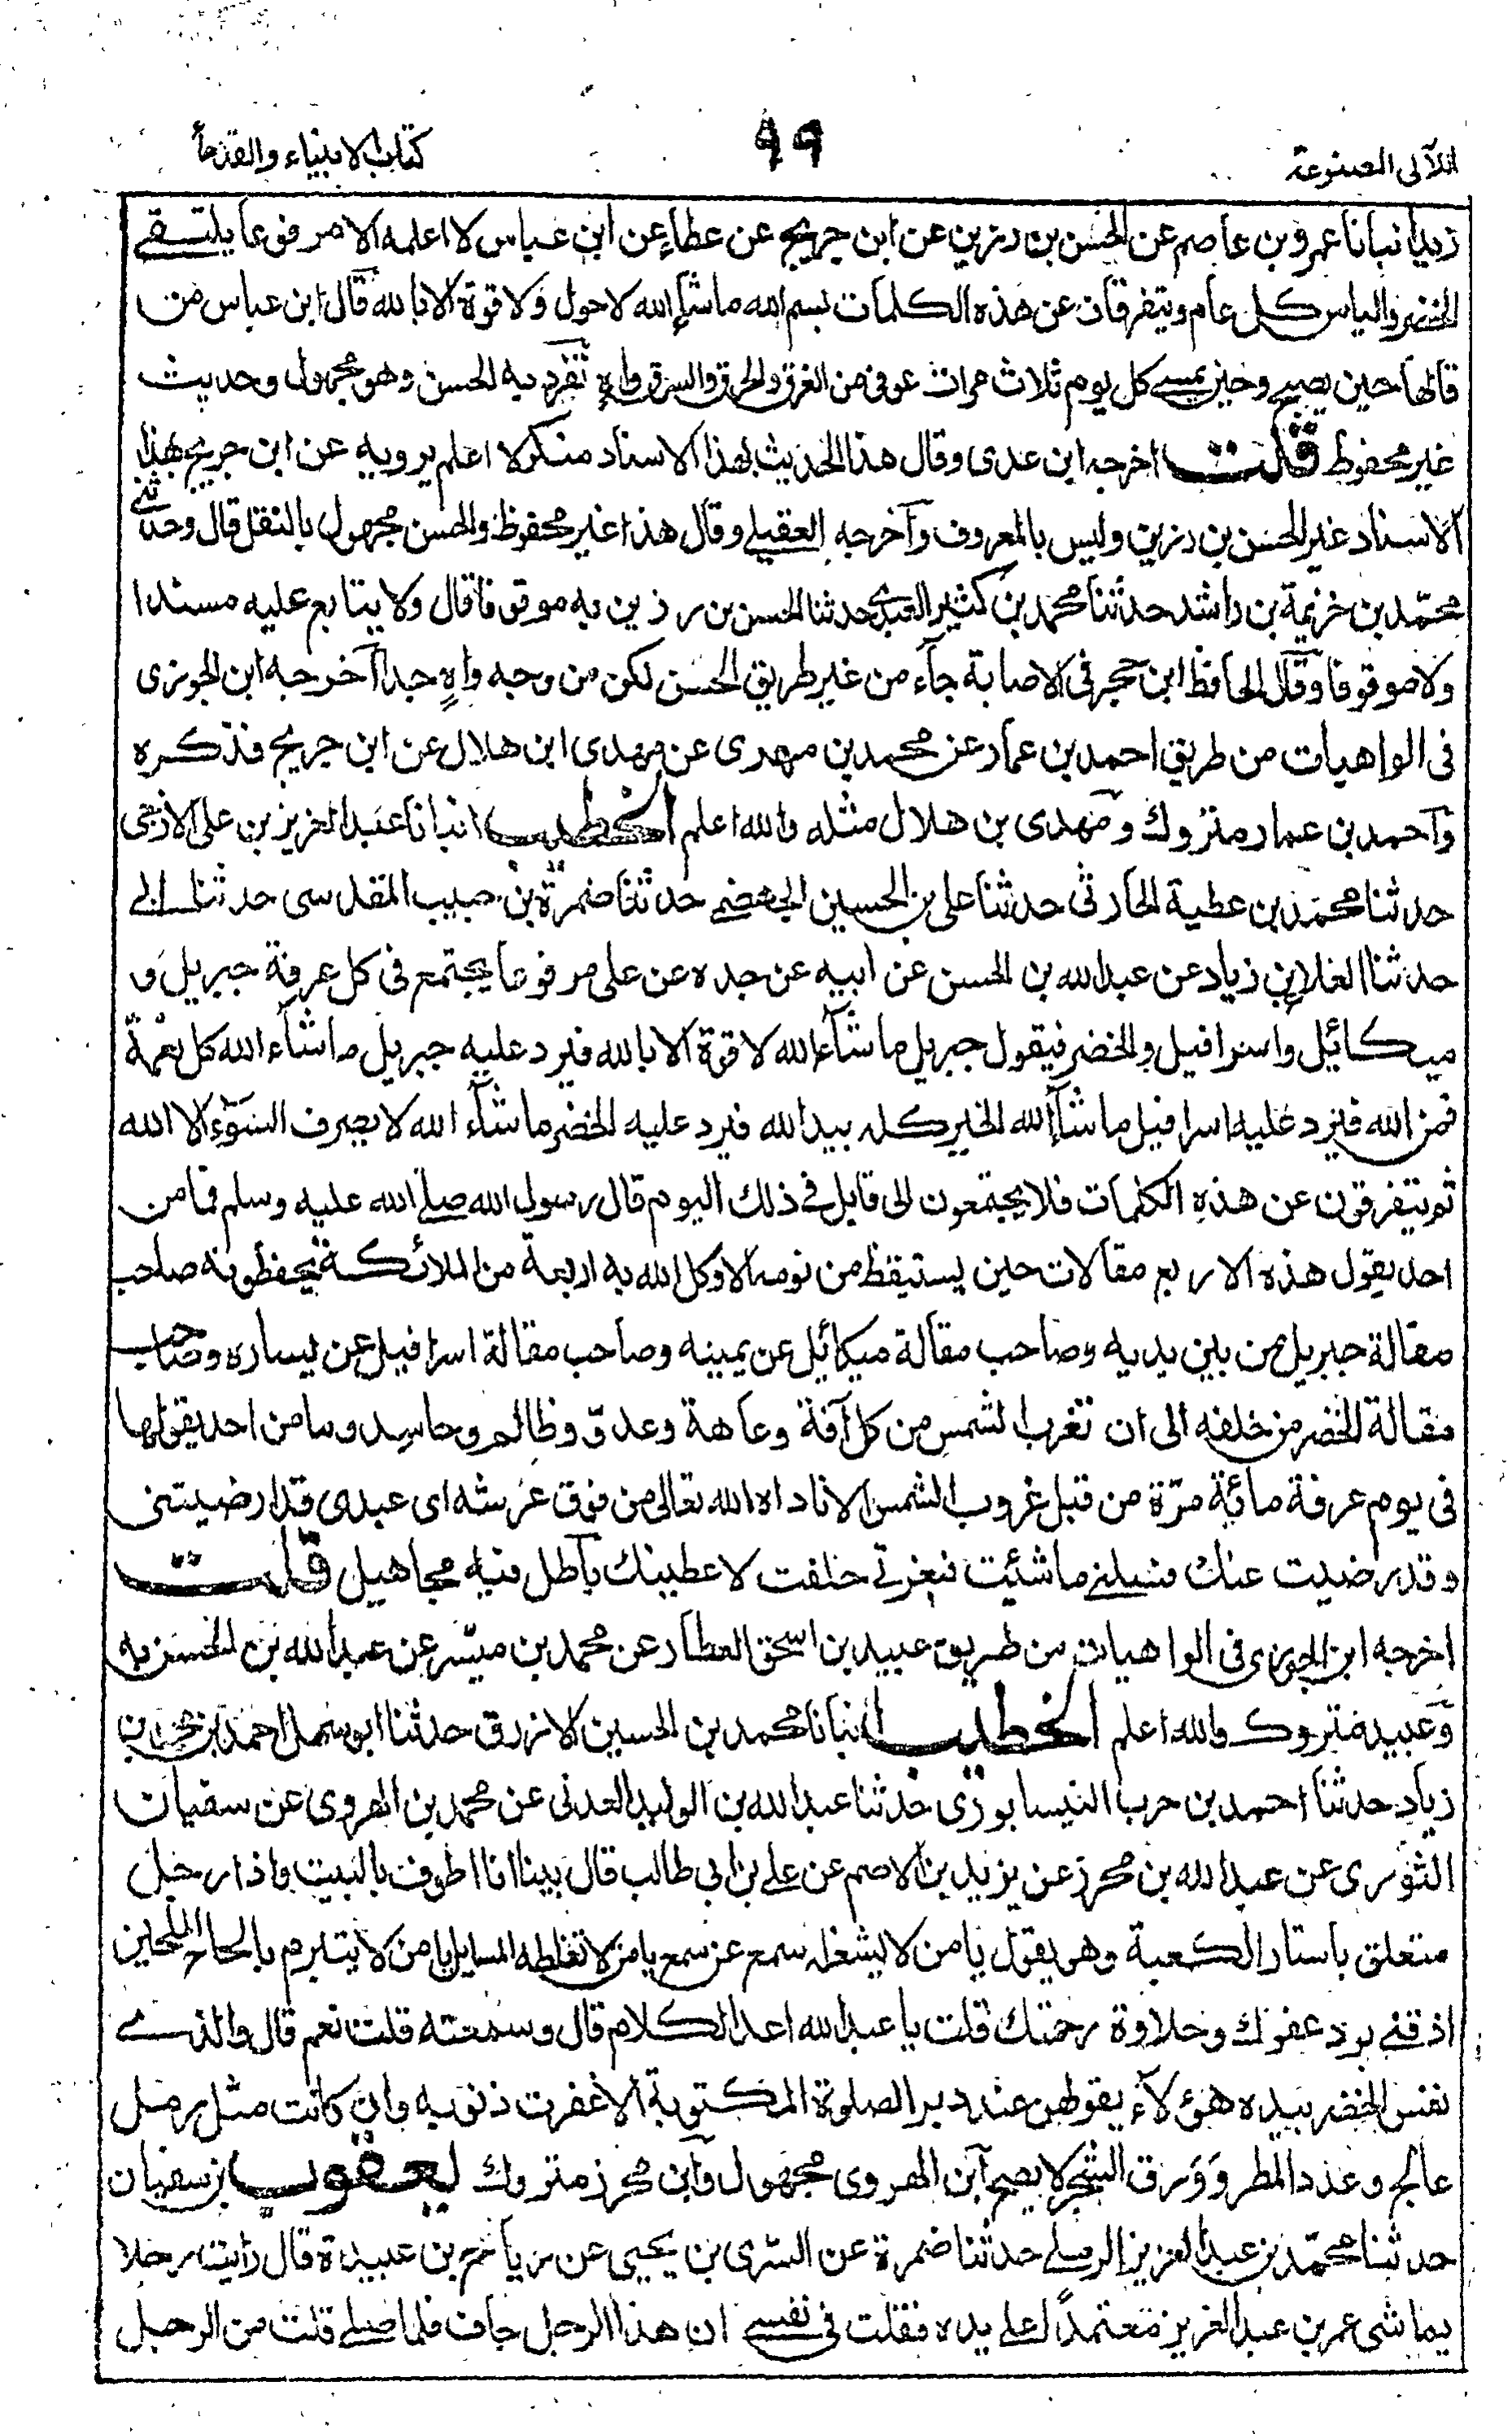 اللآلى المصنوعة
٩٩
كتاب الانبياء والقدماً
زيدا نبانا عمرو بن عاصم عن الحسن بن رزين عن ابن جريج عن عطاء عن ابن عباس لا اعلمه الا مرفوعا يلتقى
الخضر والياس كل عام ويتفرقان عن هذه الكلمات بسم الله ماشاء الله لاحول ولا قوة الا بالله قال ابن عباس من
قالها حين يصبح وحين يمسى كل يوم ثلاث مرات عوفى من الغرق والحرق والسرق واه تفرد به الحسن وهو مجهول وحديث
غير محفوظ قلت اخرجه ابن عدى وقال هذا الحديث بهذا الاسناد منكر لا اعلم يرويه عن ابن جريج بهذا
الاسناد غير الحسن بن رزين وليس بالمعروف وآخرجه العقيلى وقال هذا غير محفوظ والحسن مجهول بالنقل قال وحدثنى
محمّد بن خزيمة بن راشد حدثنا محمد بن كثير العبدى حدثنا الحسن بن رزين به موقوفا قال ولا يتابع عليه مسندا
ولا موقوفا وقال الحافظ ابن حجر فى الاصابة جاء من غير طريق الحسن لكن من وجه واهٍ جدا آخرجه ابن الجوزى
فى الواهيات من طريق احمد بن عمار عن محمد بن مهدى عن مهدى ابن هلال عن ابن جريج فذكره
وآحمد بن عمار متروك ومهدى بن هلال مثله والله اعلم الخطيب انبانا عبد العزيز بن على الازجى
حدثنا محمد بن عطية الحارثى حدثنا على بن الحسين الجهضمى حدثنا ضمرة بن حبيب المقدسى حدثنا ابى
حدثنا العلا بن زياد عن عبد الله بن الحسن عن ابيه عن جده عن على مرفوعا يجتمع فى كل عرفة جبريل و
ميكائيل واسرافيل والخضر فيقول جبريل ما شاء الله لا قوة الا بالله فيرد عليه جبريل ماشاء الله كل نعمة
فمن الله فيرد عليه اسرافيل ماشاء الله الخير كله بيد الله فيرد عليه الخضر ماشاء الله لا يصرف السوء الا الله
ثم يتفرقون عن هذه الكلمات فلا يجتمعون الى قابل فى ذلك اليوم قال رسول الله صلى الله عليه وسلم فما من
احد يقول هذه الاربع مقالات حين يستيقظ من نومه الا وكل الله به اربعة من الملائكة يحفظونه صاحب
مقالة جبريل من بين يديه وصاحب مقالة ميكائيل عن يمينه وصاحب مقالة اسرافيل عن يساره وصاحب
مقالة الخضر من خلفه الى ان تغرب الشمس من كل آفة وعاهة وعدوّ وظالم وحاسد وما من احد يقولها
فى يوم عرفة مائة مرّة من قبل غروب الشمس الا ناداه الله تعالى من فوق عرشه اى عبدى قد ارضيتنى
وقد رضيت عنك فسلنى ما شئيت فبعزتى حلفت لاعطيبنك بآطل فيه مجاهيل قلت
اخرجه ابن الجوزى فى الواهيات من طريق عبيد بن اسحق العطار عن محمد بن ميسّر عن عبد الله بن الحسن به
وعبيد متروك والله اعلم الخطيب انبانا محمد بن الحسين الازرق حدثنا ابو سهل احمد بن محمد بن
زياد حدثنا احمد بن حرب النيسابورى حدثنا عبد الله بن الوليد العدنى عن محمد بن الهروى عن سفيان
الثورى عن عبد الله بن محرز عن يزيد بن الاصم عن على بن ابى طالب قال بينا انا اطوف بالبيت واذا رجل
متعلق باستار الكعبة وهو يقول يا من لا يشغله سمع عن سمع يا من لا تغلطه المسايل يا من لا يتبرم بالحاح الملحين
اذقنى برد عفوك وحلاوة رحمتك قلت يا عبد الله اعد الكلام قال وسمعته قلت نعم قال والذى
نفس الخضر بيده هؤلآء يقولهن عند دبر الصلوة المكتوبة الا غفرت ذنوبه وان كانت مثل رمل
عالج وعدد المطر وورق الشجر لا يصح آبن الهروى مجهول وآبن محرز متروك يعقوب بن سفيان
حدثنا محمّد بن عبد العزيز الرملى حدثنا ضمرة عن السرى بن يحيى عن رياح بن عبيدة قال رايت رجلا
يماشى عمر بن عبد العزيز معتمداً على يده فقلت فى نفسى ان هذا الرجل جاف فلما صلى قلت من الرجل